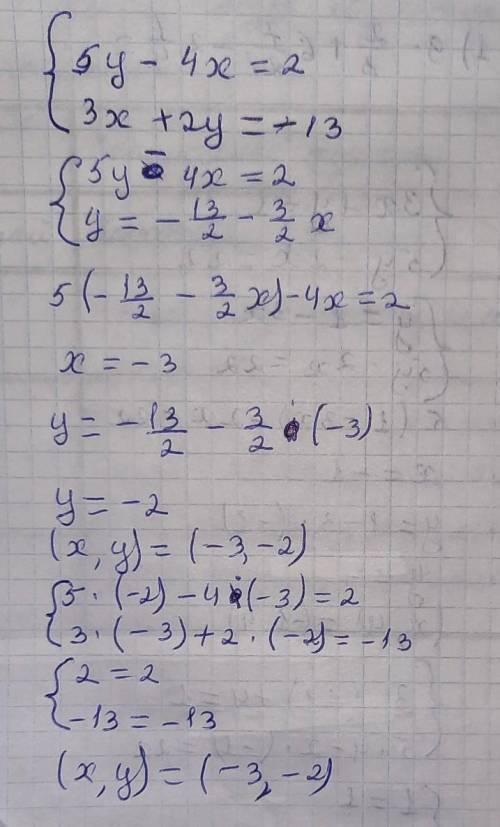 5y - 4x = 2
3x + 2y = -13
5y - 4x = 2
y = - 13/2 - 3/2 x
5 (- 13/2 - 3/2 x) - 4x = 2
x = - 3
y = - 13/2 - 3/2 · (-3)
y = -2
(x, y) = (-3, -2)
5 · (-2) - 4 · (-3) = 2
3 · (-3) + 2 · (-2) = -13
2 = 2
-13 = -13
(x, y) = (-3, -2)